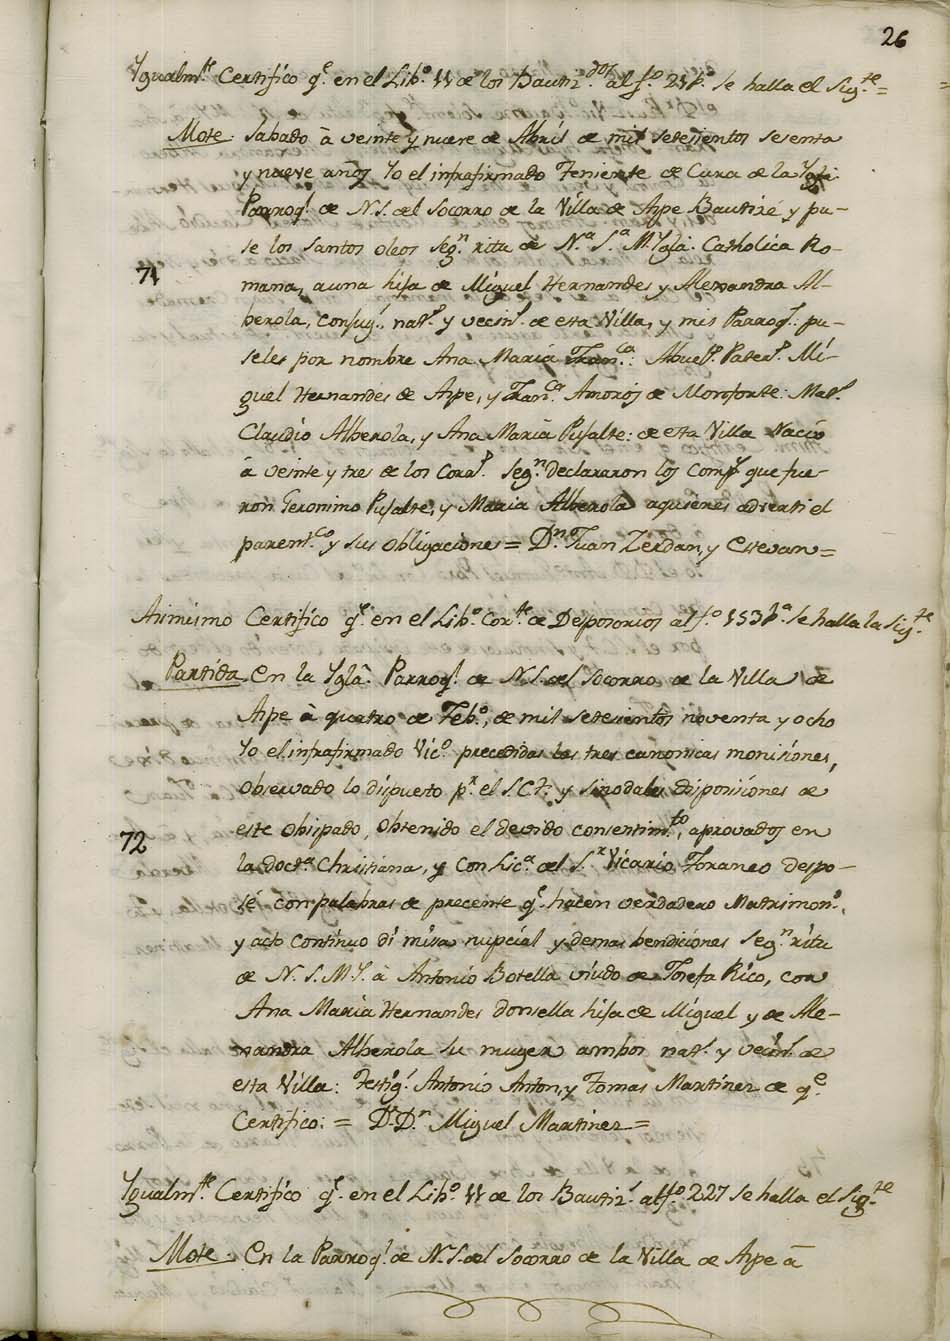 26
Ygualm.te Certifico q.e en el Lib.o 11 de los Bautiz.dos al f.o 24 b.a se halla el Sig.te =
Mote. Sabado à veinte y nueve de Abril de mil setesientos sesenta
y nueve años Yo el infrafirmado Teniente de Cura de la Ygla.
Parroq.l de N. S. del Socorro de la Villa de Aspe Bautizé y pu-
se los santos oleos seg.n ritu de N.a S.a M. Ygla. Catholica Ro-
71
mana, a una hija de Miguel Hernandes y Alexandra Al-
berola, conjug.s, nat.s y vecin.s de esta Villa, y mis Parroq.s pu-
seles por nombre Ana Maria Fran.ca: Abuel.s Pater.s Mi-
guel Hernandes de Aspe, y Fran.ca Amorós de Monforte: Mat.s
Claudio Alberola, y Ana Maria Pujalte: de esta Villa Nació
à veinte y tres de los Corr.s Seg.n declararon los Comp.s que fue-
ron Geronimo Pujalte, y Maria Alberola aquienes adverti el
parent.co y sus obligaciones = D.n Juan Zerdan, y Estevan =
Asimismo Certifico q.e en el Lib.o Cor.te de Desposorios al f.o 153 b.a se halla la Sig.te
Partida En la Ygla. Parroq.l de N. S. del Socorro de la Villa de
Aspe à quatro de Feb.o, de mil setesientos noventa y ocho
Yo el infrafirmado Vic.o precedidas las tres canonicas moniciones,
observado lo dispuesto p.r el S.C.T. y sinodales disposiciones de
este Obispado, obtenido el devido consentim.to, aprovados en
72
la Doct.a Christiana, y con Lic.a del S.r Vicario Foraneo despo-
sé con palabras de precente q.e hacen verdadero Matrimon.o,
y acto continuo di misa nupcial y demas bendiciones seg.n ritu
de N. S. M. Y. à Antonio Botella viudo de Josefa Rico, con
Ana Maria Hernandes donsella hija de Miguel y de Ale-
xandra Alberola su muger ambos nat.s y vecin.s de
esta Villa: Testig.s Antonio Anton, y Tomas Martinez de q.e
Certifico: = D.r D.n Miguel Martinez =
Ygualm.te Certifico q.e en el Lib.o 11 de los Bautiz.s al f.o 227 se halla el Sig.te
Mote. En la Parroq.l de N. S. del Socorro de la Villa de Aspe à